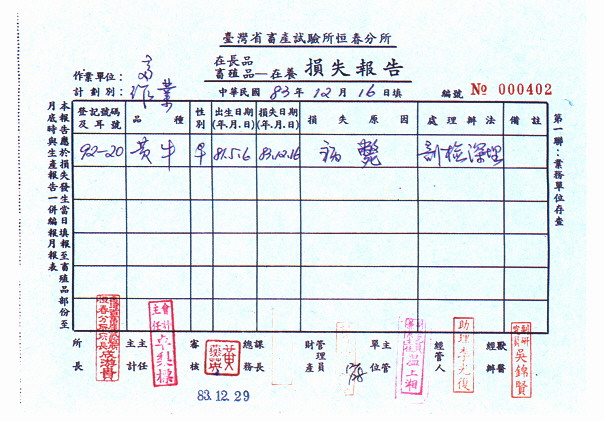 臺灣省畜產試驗所恒春分所
在長品
畜殖品—在養 損失報告
作業單位：
計劃別：
作業
中華民國 83 年 12 月 16 日填
編號 № 000402
登記號碼及耳號 品種 性別 出生日期(年.月.日) 損失日期(年.月.日) 損失原因 處理辦法 備註
92-20 黃牛 81.5.6 83.12.16 病斃 剖檢深埋
本報告應於損失發生當日填報至畜殖品部份至
月底時與生產報告一併編報月報表
第一聯：業務單位存查
所長
主計主任
審核
總務課長
財產管理員
單位主管
經管人
經辦獸醫
會計主任
助理
吳錦賢
83.12.29